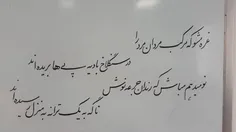 غره مشو که مرکب مردان مرد را
در سنگلاخ بادیه پی ها بریده اند
نومید هم مباش که رندان جرعه نوش
ناگه به یک ترانه به منزل رسیده اند